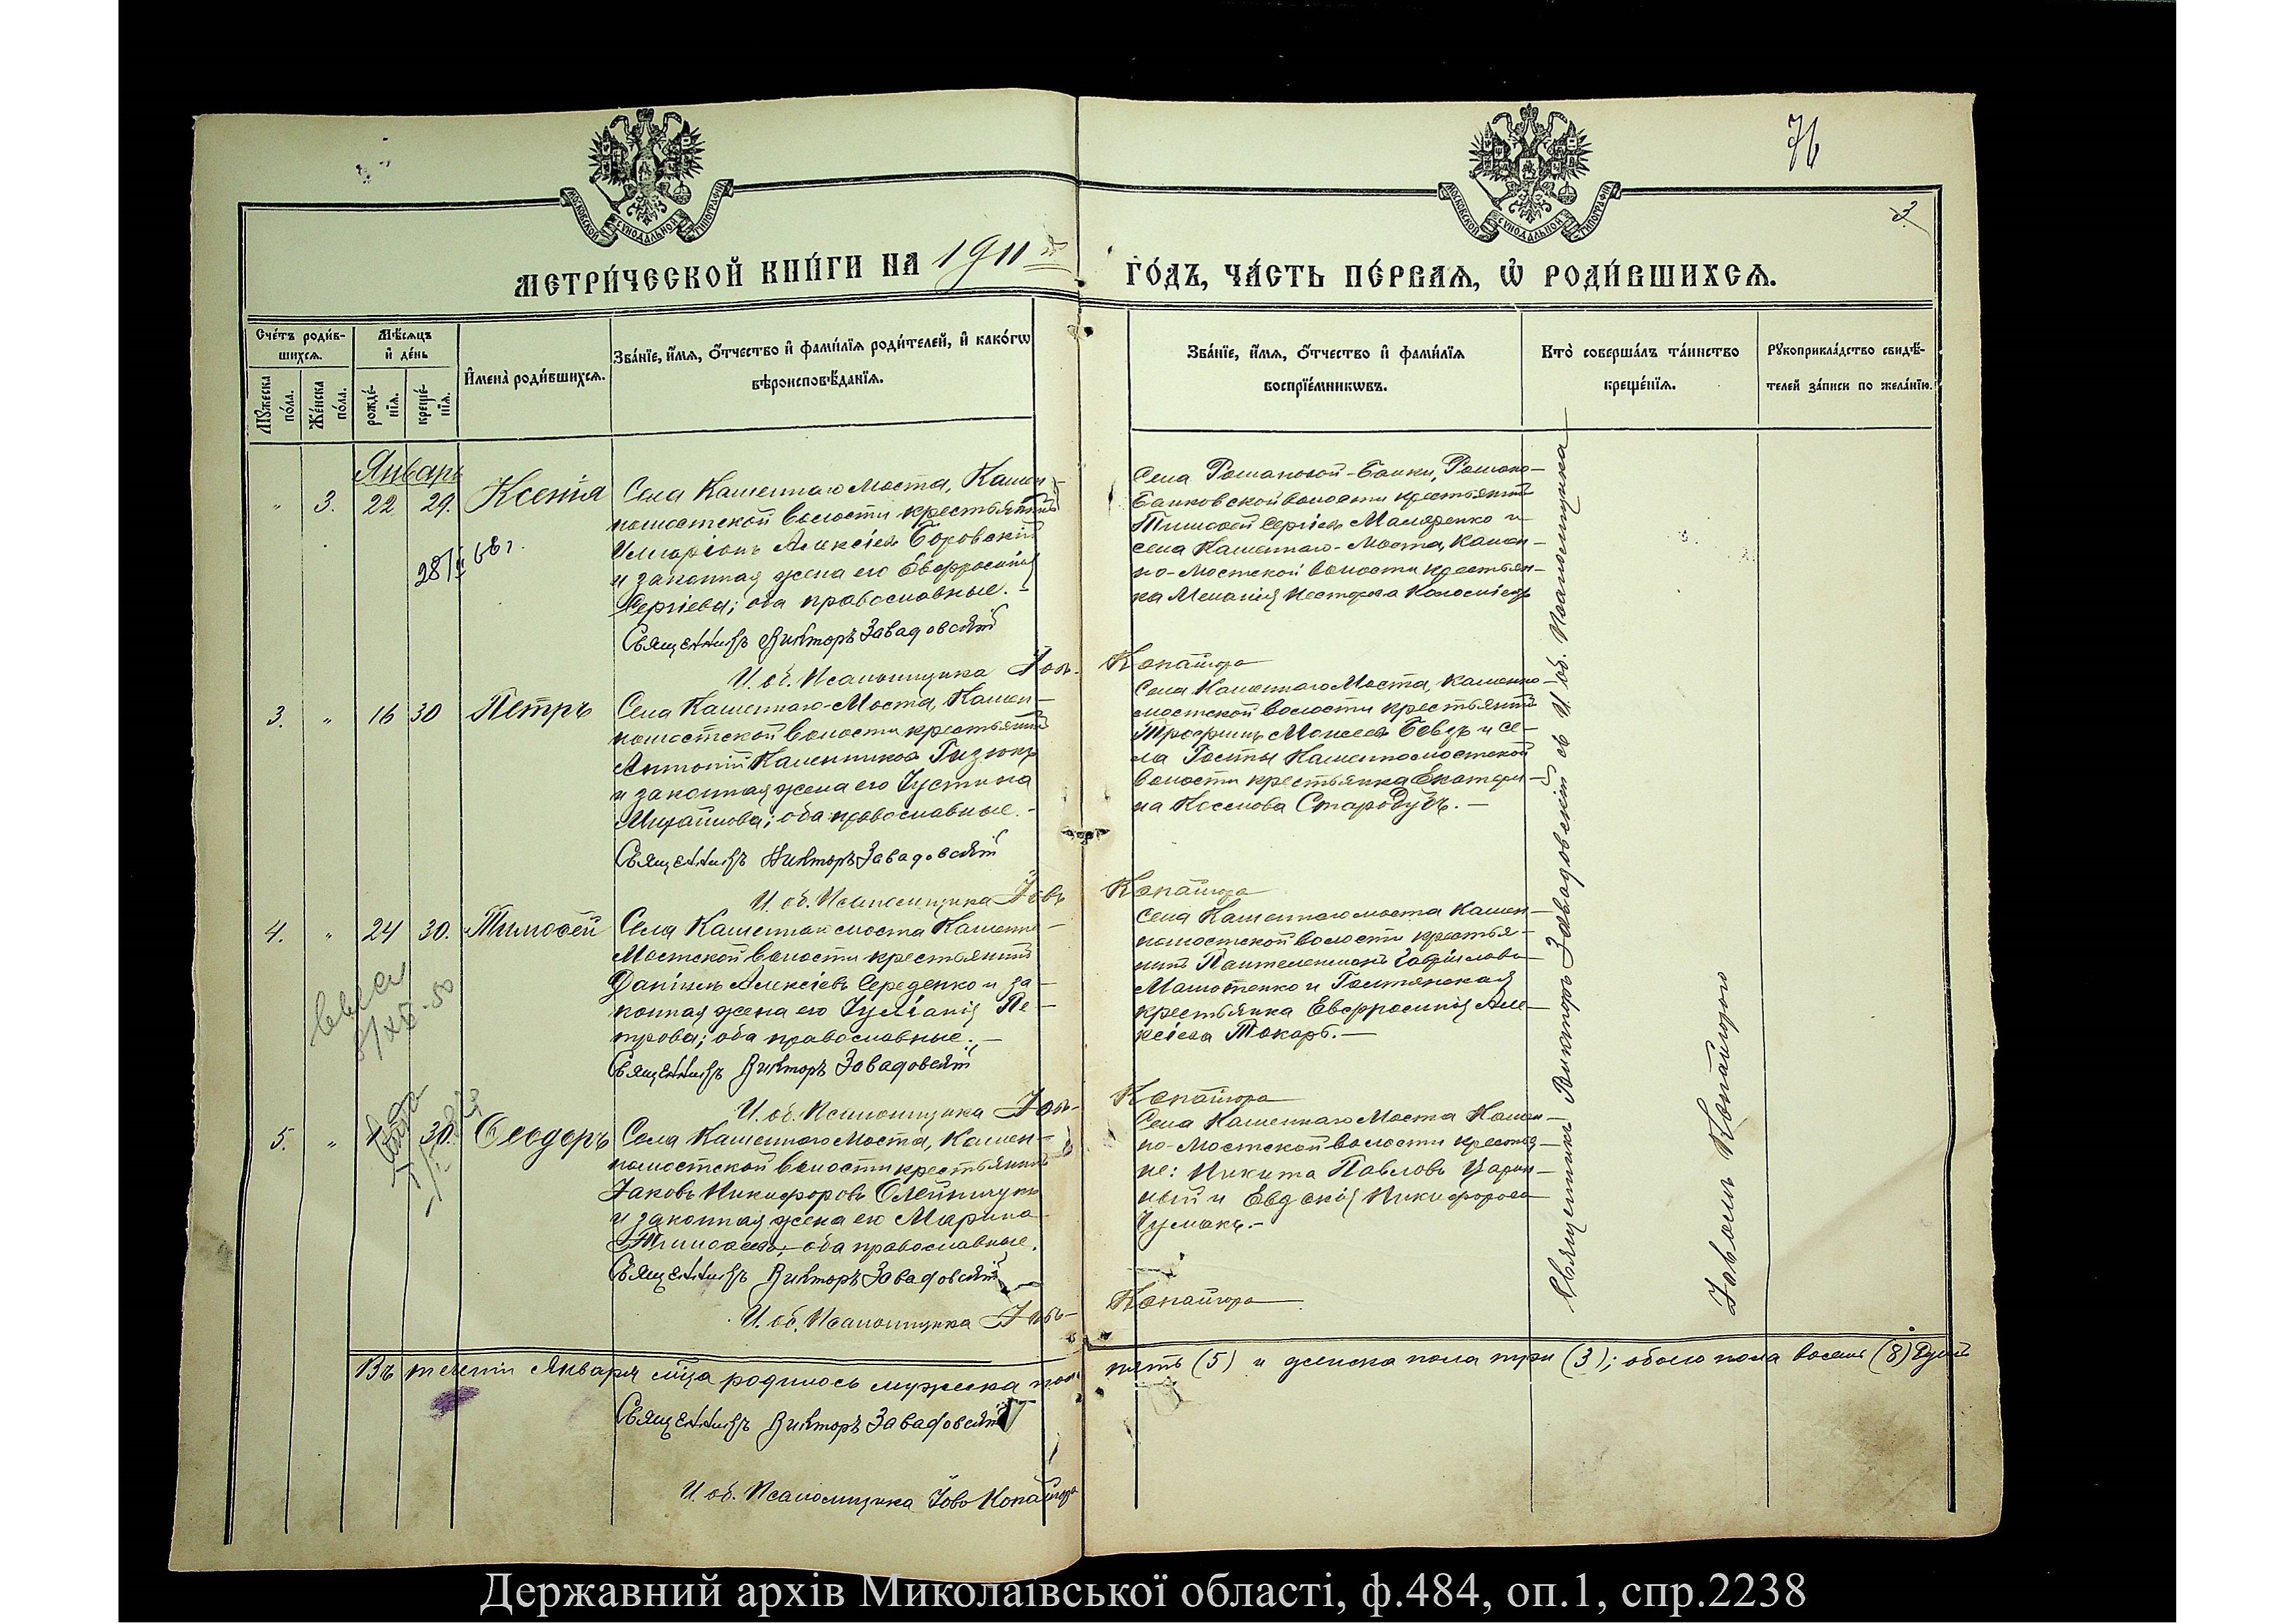 76
3
МОСКОВСКОЙ СѴНОДАЛЬНОЙ ТИПОГРАФІИ
МОСКОВСКОЙ СѴНОДАЛЬНОЙ ТИПОГРАФІИ
МЕТРИ́ЧЕСКОЙ КНИ́ГИ НА 1911 й
ГО́ДЪ, ЧА́СТЬ ПЕ́РВАѦ, Ѽ РОДИ́ВШИХСѦ.
Сче́тъ роди́в-
шихсѧ.
Мѣ́сѧцъ
и҆ де́нь
Мꙋ́жеска
по́ла.
Же́нска
по́ла.
рожде́-
нїѧ.
креще́-
нїѧ.
И҆мена̀ роди́вшихсѧ.
Зва́нїе, и҆́мѧ, ѻ҆́тчество и҆ фами́лїѧ роди́телей, и҆ како́гѡ
вѣроисповѣ́данїѧ.
Зва́нїе, и҆́мѧ, ѻ҆́тчество и҆ фами́лїѧ
воспрїе́мникѡвъ.
Кто̀ соверша́лъ та́инство
креще́нїѧ.
Рꙋкоприкла́дство свидѣ́-
телей за́писи по жела́нїю.
Январь
" 3. 22 29. Ксенія
28/ 68 г.
Села Каменнаго Моста, Камен-
номостской волости крестьянинъ
Илларіонъ Алексіевъ Боровскій
и законная жена его Евфросинія
Сергіева; оба православные. -
Священникъ Викторъ Завадовскій
И. об. Псаломщика Іовъ Копайгора
Села Романовой-Балки, Романо-
Балковской волости крестьянинъ
Тимофей Сергіевъ Маляренко и
села Каменнаго-Моста, Камен-
но-Мостской волости крестьян-
ка Меланія Несторова Коломіецъ
3. " 16 30 Петръ
Села Каменнаго-Моста, Камен-
номостской волости крестьянинъ
Антоній
и законная жена его Іустина
Михайлова; оба православные. -
Священникъ Викторъ Завадовскій
И. об. Псаломщика Іовъ Копайгора
Села Каменнаго Моста, Каменно-
мостской волости крестьянинъ
Трофимъ Моисеевъ Бевзъ и се-
ла Голты Каменномостской
волости крестьянка Екатери-
на Стародубъ. -
4. " 24 30. Тимофей
Села Каменнаго моста Каменно-
Мостской волости крестьянинъ
Даніилъ Алексіевъ Середенко и за-
конная жена его Іуліанія Пе-
трова; оба православные. -
Священникъ Викторъ Завадовскій
И. об. Псаломщика Іовъ Копайгора
Села Каменнаго моста Камен-
номостской волости крестья-
нинъ Пантелеимонъ Гавріиловъ
и Голтянская
крестьянка Евфросинія Але-
ксіева Токарь. -
5. " 30. Ѳеодоръ
Села Каменнаго Моста, Камен-
номостской волости крестьянинъ
Іаковъ Никифоровъ Олейничукъ
и законная жена его Марина
Тимофеева; оба православные.
Священникъ Викторъ Завадовскій
И. об. Псаломщика Іовъ Копайгора
Села Каменнаго Моста Камен-
но-Мостской волости крестья-
не: Никита Павловъ Царин-
ный и Евдокія Никифорова
Чумакъ. -
Священникъ Викторъ Завадовскій съ И. об. Псаломщика
Іовомъ Копайгорою
Въ теченіи Января мѣсяца родилось мужеска пола пять (5) и женска пола три (3); обоего пола восемь (8) душъ
Священникъ Викторъ Завадовскій
И. об. Псаломщика Іовъ Копайгора
Державний архів Миколаївської області, ф.484, оп.1, спр.2238